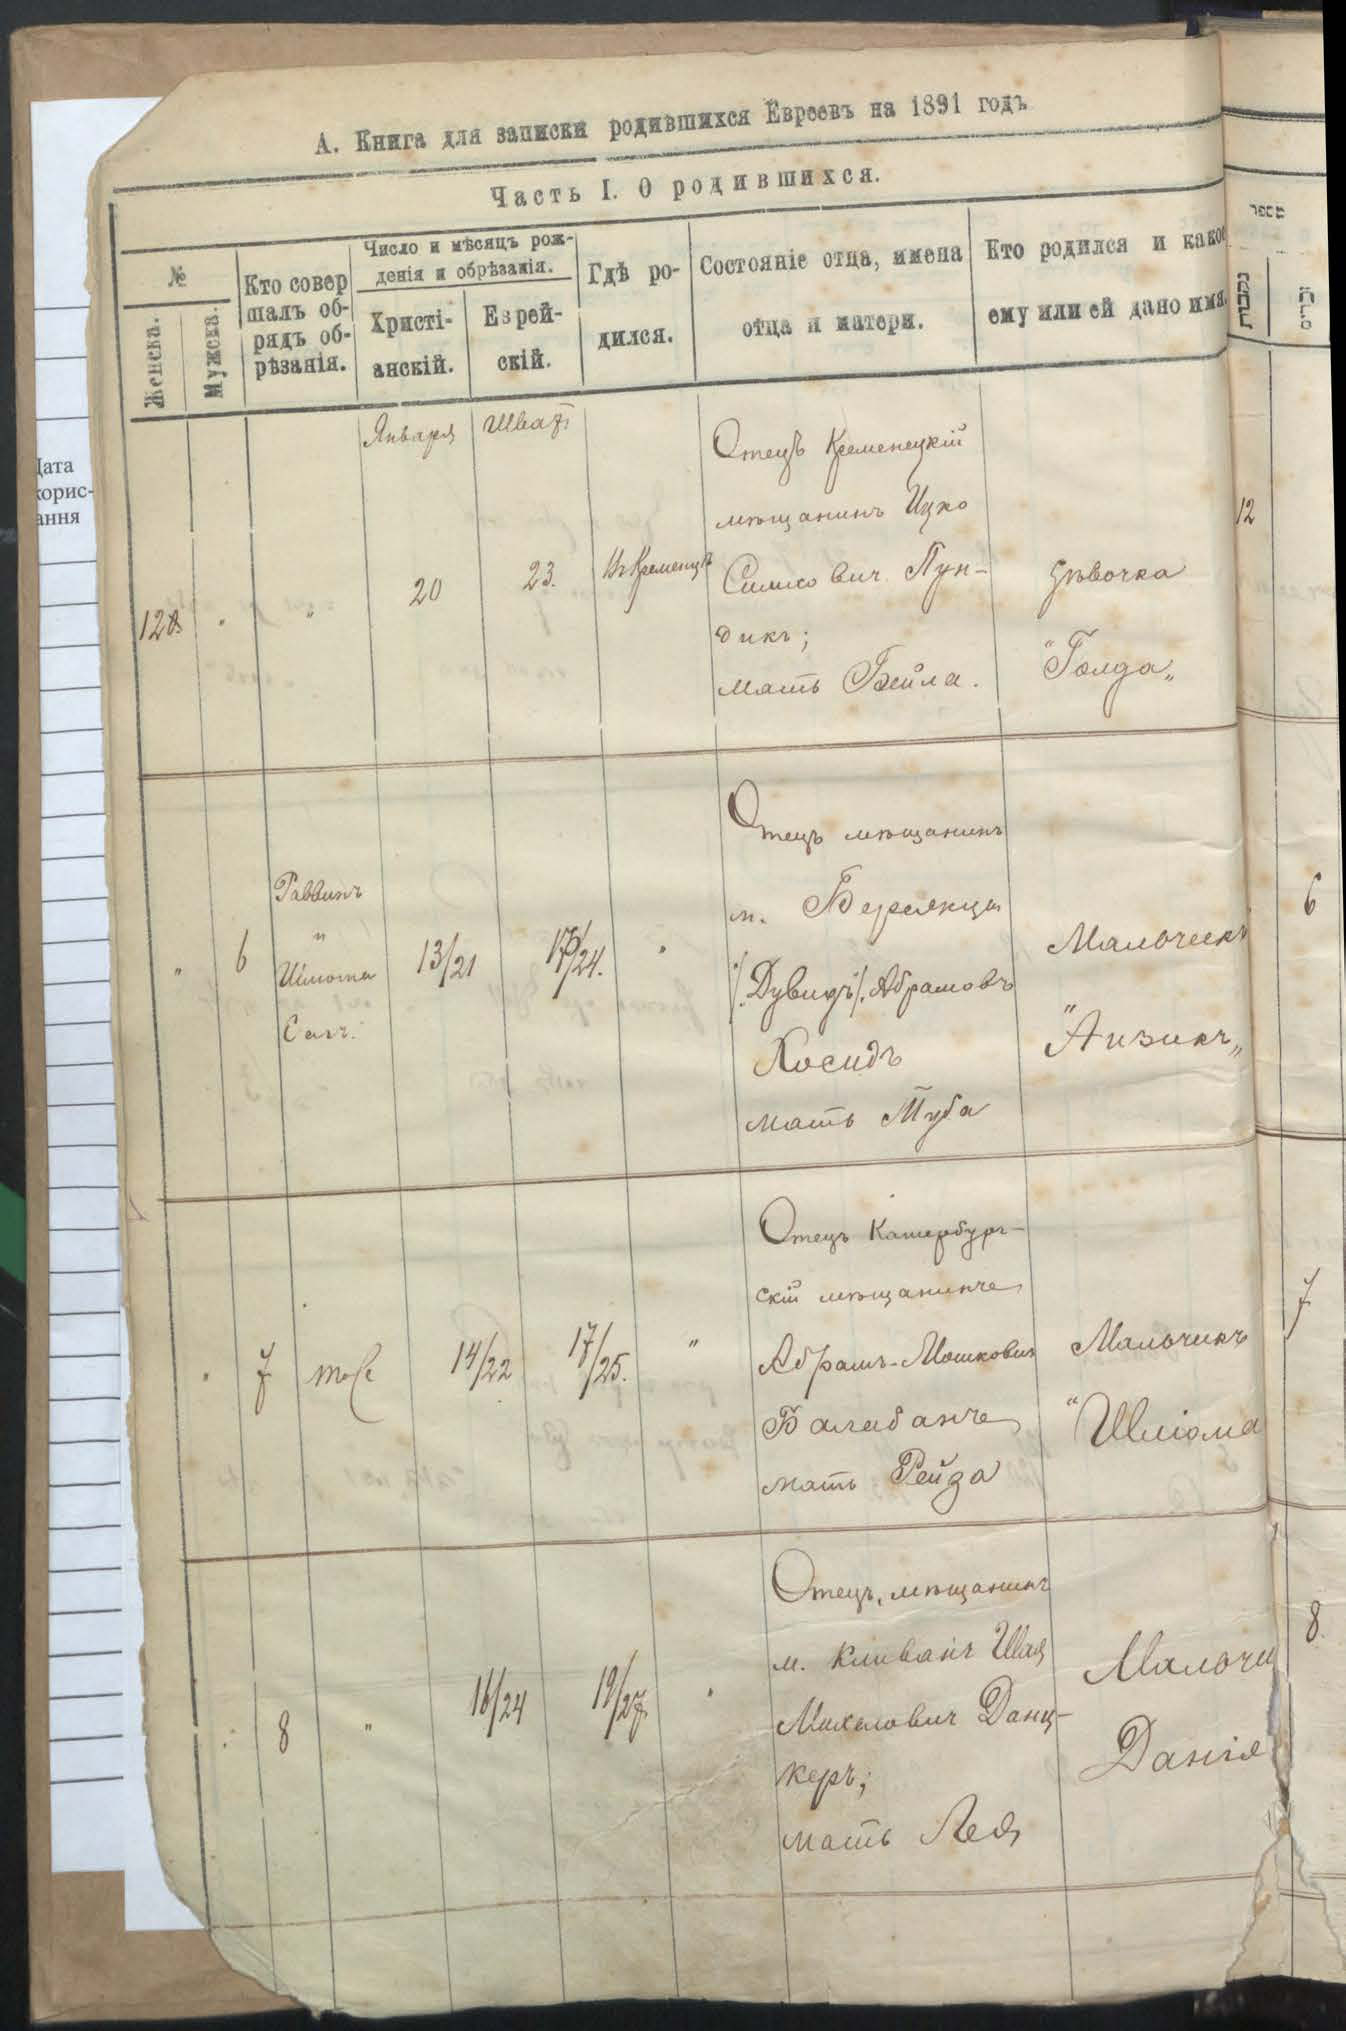 А. Книга для записки родившихся Евреевъ на 1891 годъ
Часть I. О родившихся.
№
Женска.
Мужска.
Кто совер
шалъ об-
рядъ об-
рѣзанія.
Число и мѣсяцъ рож-
денія и обрѣзанія.
Христі-
анскій.
Еврей-
скій.
Гдѣ ро-
дился.
Состояніе отца, имена
отца и матери.
Кто родился и какое
ему или ей дано имя.
מספר
נקבות
זכרים
Января
Шватъ
12
"
"
20
23.
Въ Кременцѣ
Отецъ Кременецкій
мѣщанинъ Ицко
Симкович Пун-
дикъ;
мать Бейла.
дѣвочка
"Голда"
12
"
6
Раввинъ
"
Шлиома
Салъ.
13/21
/24.
"
Отецъ мѣщанинъ
м. Бережци
/:Дувидъ/: Абрамовъ
Хосидъ
мать Туба
Мальчикъ
"Аизикъ"
6
"
7
тоже
14/22
17/25.
"
Отецъ Катербург-
скій мѣщанинъ
Абрамъ-Мошкович
Балабанъ
мать Рейза
Мальчикъ
"Шліома
7
"
8
"
16/24
19/27.
"
Отецъ, мѣщанинъ
м. Кливанъ Шая
Михелович Данц-
керъ;
мать Лея
Мальчи
Даніе
8.
Дата
корис-
ання